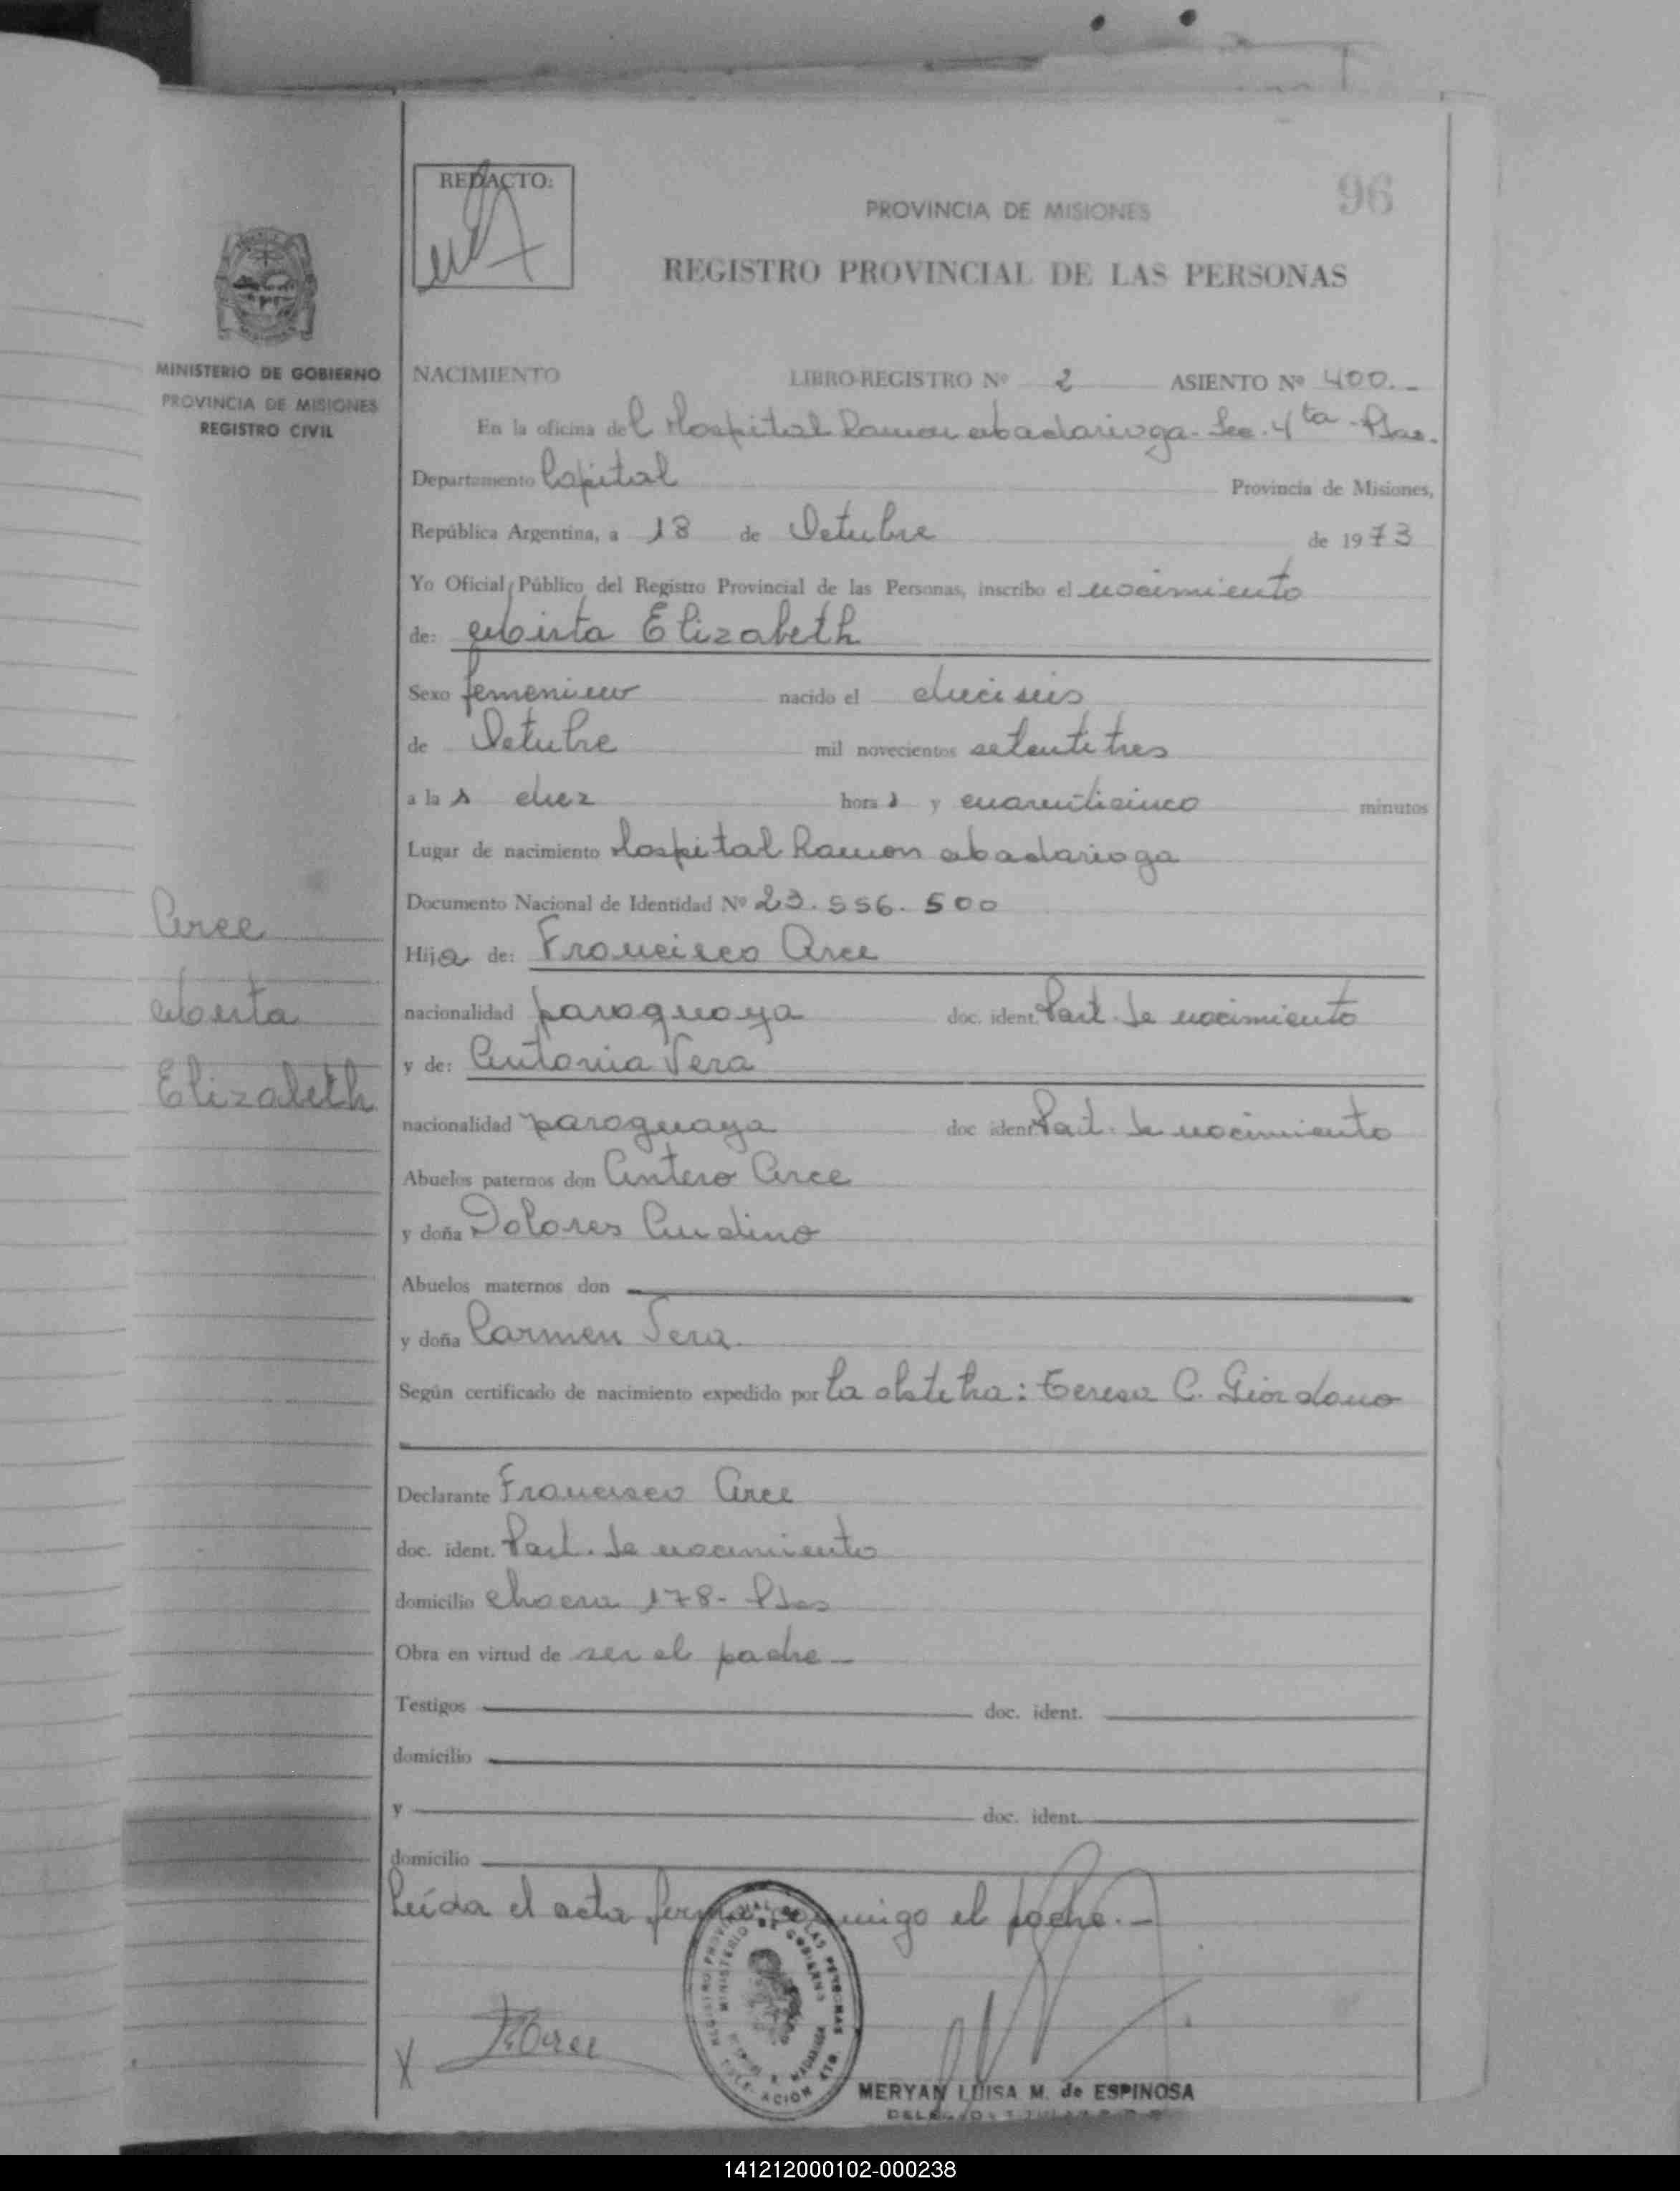 REDACTO:
96
PROVINCIA DE MISIONES
REGISTRO PROVINCIAL DE LAS PERSONAS
MINISTERIO DE GOBIERNO
PROVINCIA DE MISIONES
REGISTRO CIVIL
NACIMIENTO LIBRO-REGISTRO Nº 2 ASIENTO Nº 400.-
En la oficina del Hospital Ramon Madariaga - Sec. 4ta - Pdas.
Departamento Capital Provincia de Misiones,
República Argentina, a 18 de Octubre de 1973
Yo Oficial Público del Registro Provincial de las Personas, inscribo el nacimiento
de: Mirta Elizabeth
Sexo femenino nacido el dieciseis
de Octubre mil novecientos setentitres
a las diez horas y cuarenticinco minutos
Lugar de nacimiento Hospital Ramon Madariaga
Documento Nacional de Identidad Nº 23.556.500
Arce
Mirta
Elizabeth
Hija de: Francisco Arce
nacionalidad paraguaya doc. ident. Part. de nacimiento
y de: Antonia Vera
nacionalidad paraguaya doc ident Part. de nacimiento
Abuelos paternos don Antero Arce
y doña Dolores
Abuelos maternos don
y doña Carmen Vera.
Según certificado de nacimiento expedido por la obstetra: Teresa C. Giordano
Declarante Francisco Arce
doc. ident. Part. de nacimiento
domicilio chacra 178- Pdas
Obra en virtud de ser el padre-
Testigos doc. ident.
domicilio
y doc. ident.
domicilio
Leída el acta firma conmigo el padre.-
REGISTRO PROVINCIAL DE LAS PERSONAS
MINISTERIO DE GOBIERNO
X Arce
MERYAN LUISA M. de ESPINOSA
141212000102-000238